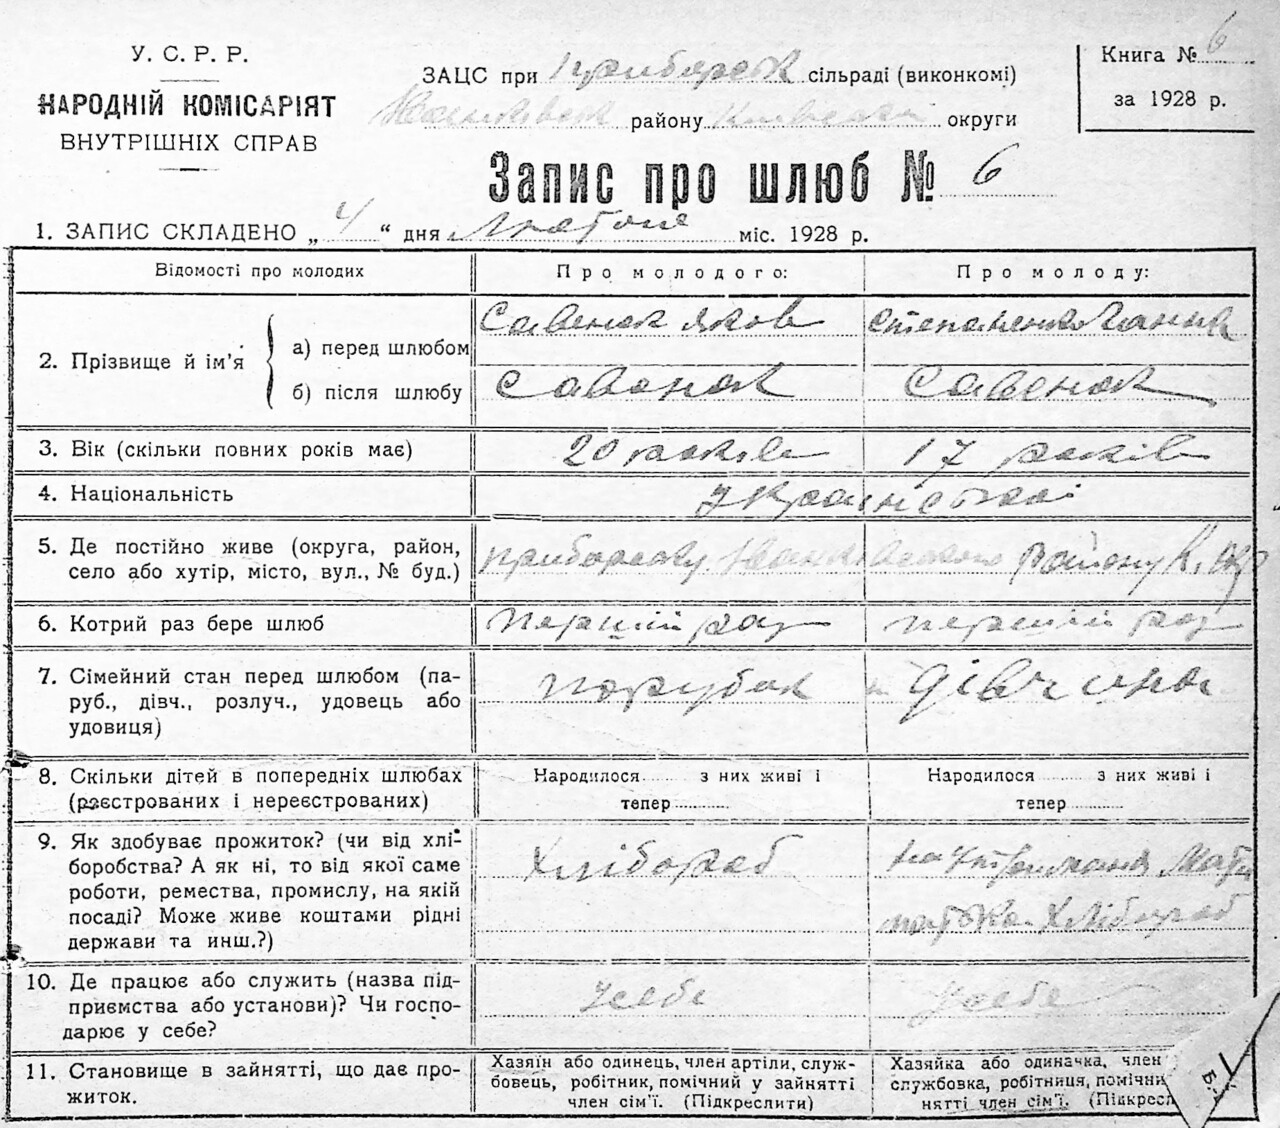 У. С. Р. Р.
НАРОДНІЙ КОМІСАРІЯТ
ВНУТРІШНІХ СПРАВ
ЗАЦС при Прибірськ сільраді (виконкомі)
району округи
Книга № 6
за 1928 р.
Запис про шлюб № 6
1. ЗАПИС СКЛАДЕНО „ 4 “ дня міс. 1928 р.
Відомості про молодих Про молодого: Про молоду:
2. Прізвище й ім’я
а) перед шлюбом Савенок Яков Степаненко Ганна
б) після шлюбу Савенок Савенок
3. Вік (скільки повних років має) 20 років 17 років
4. Національність Українські
5. Де постійно живе (округа, район,
село або хутір, місто, вул., № буд.) району К.
6. Котрий раз бере шлюб перший раз перший раз
7. Сімейний стан перед шлюбом (па-
руб., дівч., розлуч., удовець або
удовиця) парубок дівчина
8. Скільки дітей в попередніх шлюбах
(реєстрованих і нереєстрованих)
Народилося з них живі і
тепер
Народилося з них живі і
тепер
9. Як здобуває прожиток? (чи від хлі-
боробства? А як ні, то від якої саме
роботи, ремества, промислу, на якій
посаді? Може живе коштами рідні
держави та инш.?)
Хлібороб
на
Хлібороб
10. Де працює або служить (назва під-
приємства або установи)? Чи госпо-
дарює у себе?
усебе усебе
11. Становище в зайнятті, що дає про-
житок.
Хазяїн або одинець, член артіли, служ-
бовець, робітник, помічний у зайнятті
член сім’ї. (Підкреслити)
Хазяйка або одиначка, член
службовка, робітниця, помічни
нятті член сім’ї. (Підкресл